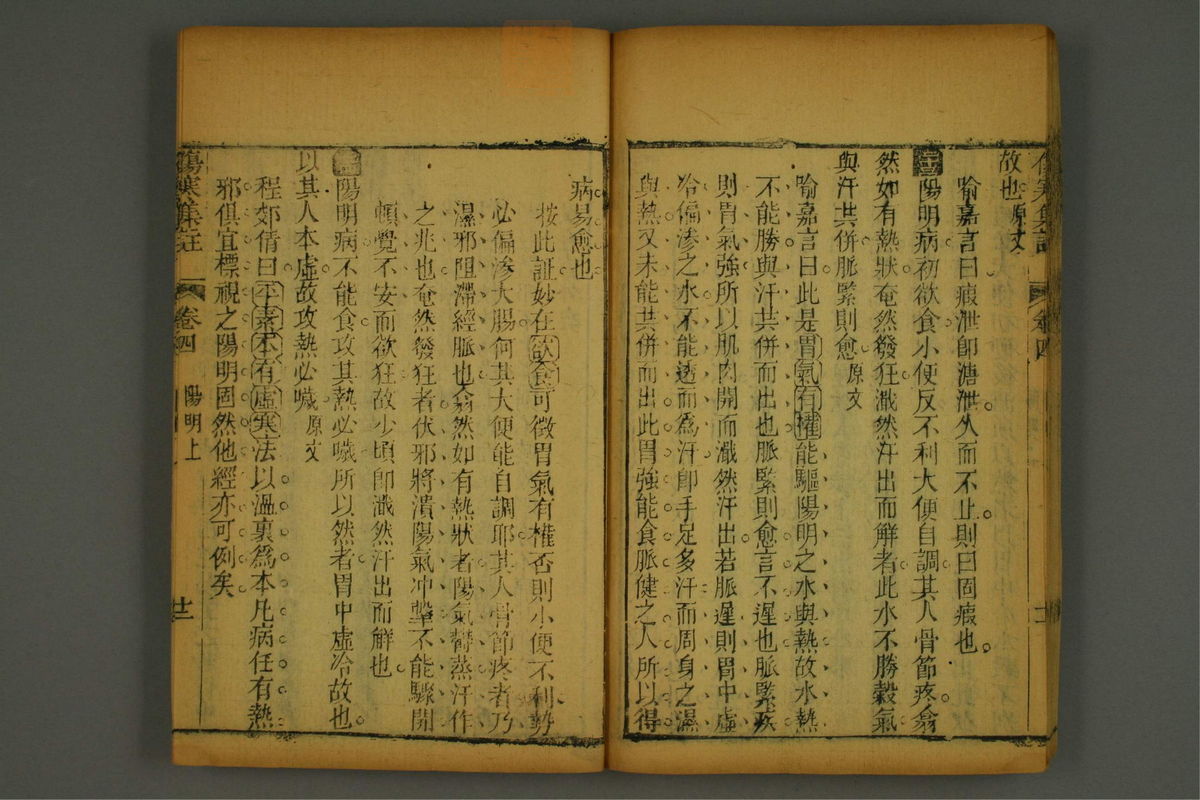 故也原文
喻嘉言曰瘕泄卽溏泄久而不止則曰固瘕也
陽明病初欲食小便反不利大便自調其人骨節疼翕
然如有熱狀奄然發狂濈然汗出而解者此水不勝穀氣
與汗共併脈緊則愈原文
喻嘉言曰此是胃氣有權能驅陽明之水與熱故水熱
不能勝與汗共併而出也脈緊則愈言不遲也脈緊疾
則胃氣強所以肌肉開而濈然汗出若脈遲則胃中虛
冷偏滲之水不能透而爲汗卽手足多汗而周身之濕
與熱又未能共併而出此胃強能食脈健之人所以得
病易愈也
按此証妙在欲食可徵胃氣有權否則小便不利勢
必偏滲大腸何其大便能自調耶其人骨節疼者乃
濕邪阻滯經脈也翕然如有熱狀者陽氣鬱蒸汗作
之兆也奄然發狂者伏邪將潰陽氣冲擊不能驟開
頓覺不安而欲狂故少頃卽濈然汗出而解也
陽明病不能食攻其熱必噦所以然者胃中虛冷故也
以其人本虛故攻熱必噦原文
程郊倩曰平素本有虛寒法以溫裏爲本凡病任有熱
邪俱宜標視之陽明固然他經亦可例矣
傷寒集註
卷四
陽明上